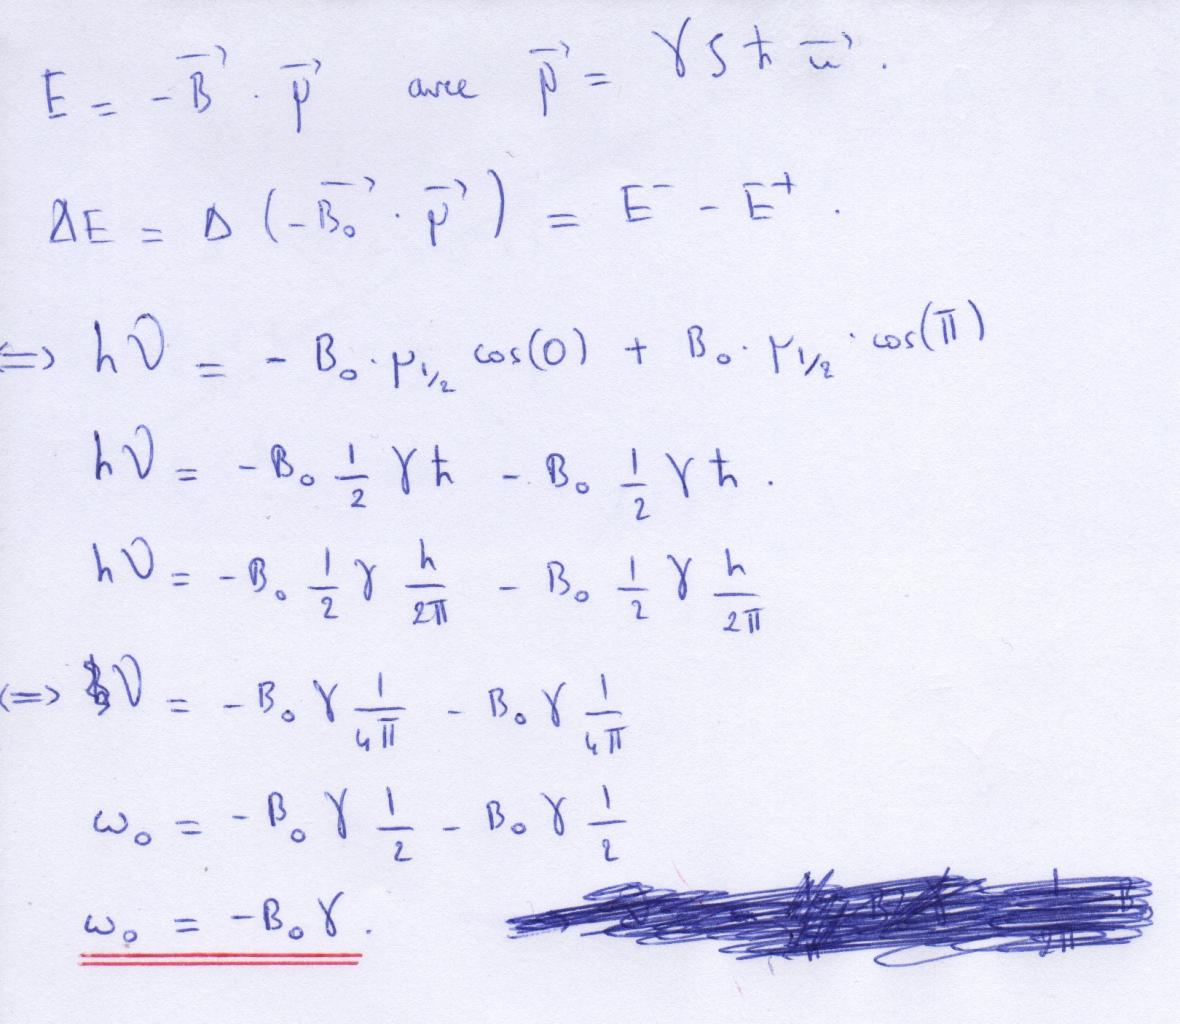 E = -B⃗ . μ⃗ avec μ⃗ = γ S ħ u⃗ .
ΔE = Δ (-B₀⃗ . μ⃗) = E⁻ - E⁺ .
<=> hν = - B₀ . μ₁/₂ cos(0) + B₀ . μ₁/₂ . cos(π)
hν = -B₀ 1/2 γ ħ - B₀ 1/2 γ ħ .
hν = -B₀ 1/2 γ h/2π - B₀ 1/2 γ h/2π
<=> ν = -B₀ γ 1/4π - B₀ γ 1/4π
ω₀ = -B₀ γ 1/2 - B₀ γ 1/2
ω₀ = -B₀ γ .